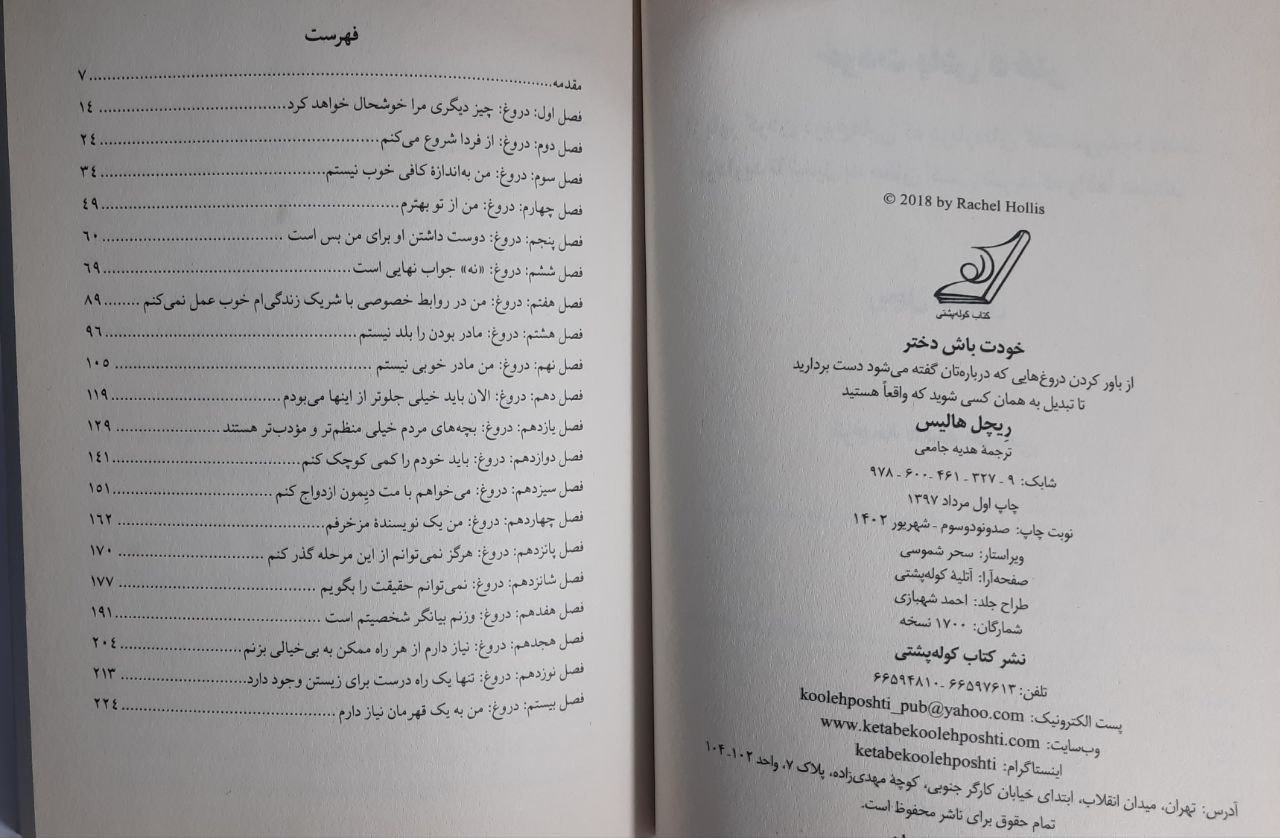 © 2018 by Rachel Hollis
کتاب کوله‌پشتی
خودت باش دختر
از باور کردن دروغ‌هایی که درباره‌تان گفته می‌شود دست بردارید
تا تبدیل به همان کسی شوید که واقعاً هستید
رِیچل هالیس
ترجمهٔ هدیه جامعی
شابک: ۹ - ۳۲۷ - ۴۶۱ - ۶۰۰ - ۹۷۸
چاپ اول مرداد ۱۳۹۷
نوبت چاپ: صدونودوسوم - شهریور ۱۴۰۲
ویراستار: سحر شموسی
صفحه‌آرا: آتلیهٔ کوله‌پشتی
طراح جلد: احمد شهبازی
شمارگان: ۱۷۰۰ نسخه
نشر کتاب کوله‌پشتی
تلفن: ۶۶۵۹۷۶۱۳ - ۶۶۵۹۴۸۱۰
پست الکترونیک: koolehposhti_pub@yahoo.com
وب‌سایت: www.ketabekoolehposhti.com
اینستاگرام: ketabekoolehposhti
آدرس: تهران، میدان انقلاب، ابتدای خیابان کارگر جنوبی، کوچهٔ مهدی‌زاده، پلاک ۷، واحد ۱۰۲-۱۰۴
تمام حقوق برای ناشر محفوظ است.
فهرست
مقدمه ۷
فصل اول: دروغ: چیز دیگری مرا خوشحال خواهد کرد ۱۴
فصل دوم: دروغ: از فردا شروع می‌کنم ۲۴
فصل سوم: دروغ: من به‌اندازهٔ کافی خوب نیستم ۳۴
فصل چهارم: دروغ: من از تو بهترم ۴۹
فصل پنجم: دروغ: دوست داشتن او برای من بس است ۶۰
فصل ششم: دروغ: «نه» جواب نهایی است ۶۹
فصل هفتم: دروغ: من در روابط خصوصی با شریک زندگی‌ام خوب عمل نمی‌کنم ۸۹
فصل هشتم: دروغ: مادر بودن را بلد نیستم ۹۶
فصل نهم: دروغ: من مادر خوبی نیستم ۱۰۵
فصل دهم: دروغ: الان باید خیلی جلوتر از اینها می‌بودم ۱۱۹
فصل یازدهم: دروغ: بچه‌های مردم خیلی منظم‌تر و مؤدب‌تر هستند ۱۲۹
فصل دوازدهم: دروغ: باید خودم را کمی کوچک کنم ۱۴۱
فصل سیزدهم: دروغ: می‌خواهم با مت دیمون ازدواج کنم ۱۵۱
فصل چهاردهم: دروغ: من یک نویسندهٔ مزخرفم ۱۶۲
فصل پانزدهم: دروغ: هرگز نمی‌توانم از این مرحله گذر کنم ۱۷۰
فصل شانزدهم: دروغ: نمی‌توانم حقیقت را بگویم ۱۷۷
فصل هفدهم: دروغ: وزنم بیانگر شخصیتم است ۱۹۱
فصل هجدهم: دروغ: نیاز دارم از هر راه ممکن به بی‌خیالی بزنم ۲۰۴
فصل نوزدهم: دروغ: تنها یک راه درست برای زیستن وجود دارد ۲۱۳
فصل بیستم: دروغ: من به یک قهرمان نیاز دارم ۲۲۴